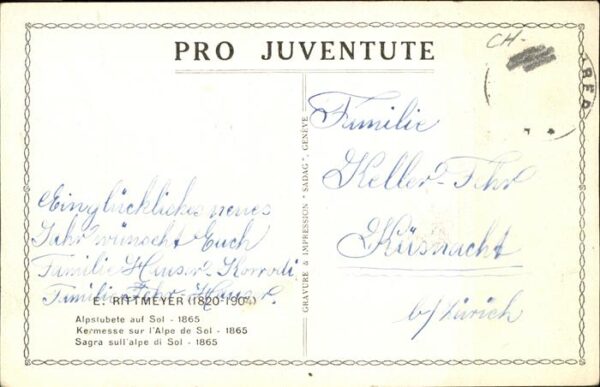 PRO JUVENTUTE
CH-
BER
Familie
Keller-Fehr
Küsnacht
b/Zürich
Ein glückliches neues
Jahr wünscht Euch
Familie Hauser-Korrodi
Familie Fehr-Hauser.
E. RITTMEYER (1820-1904)
Alpstubete auf Sol - 1865
Kermesse sur l'Alpe de Sol - 1865
Sagra sull'alpe di Sol - 1865
GRAVURE & IMPRESSION "SADAG", GENÈVE